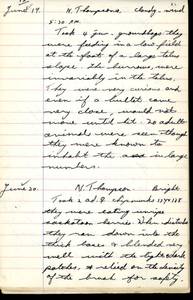 June 19. N. Thompson, Cloudy - wind
5:30 P.M.
Took 4 juv. groundhogs they
were feeding in a low field
at the foot of a long talus
slope. The burrows were
invariably in the talus.
They were very curious and
even if a bullet came
very close, would not
move until hit. 20 adult
animals were seen though
they were known to
inhabit the area in large
numbers.
June 20. N. Thompson Bright
Took 2 ad. ♀ chipmunks 127 & 128
they were eating unripe
saskatoon berries. When disturbed
they ran down into the
thick bases & blended very
well with the light & dark
patches, & relied on the density
of the brush for safety.